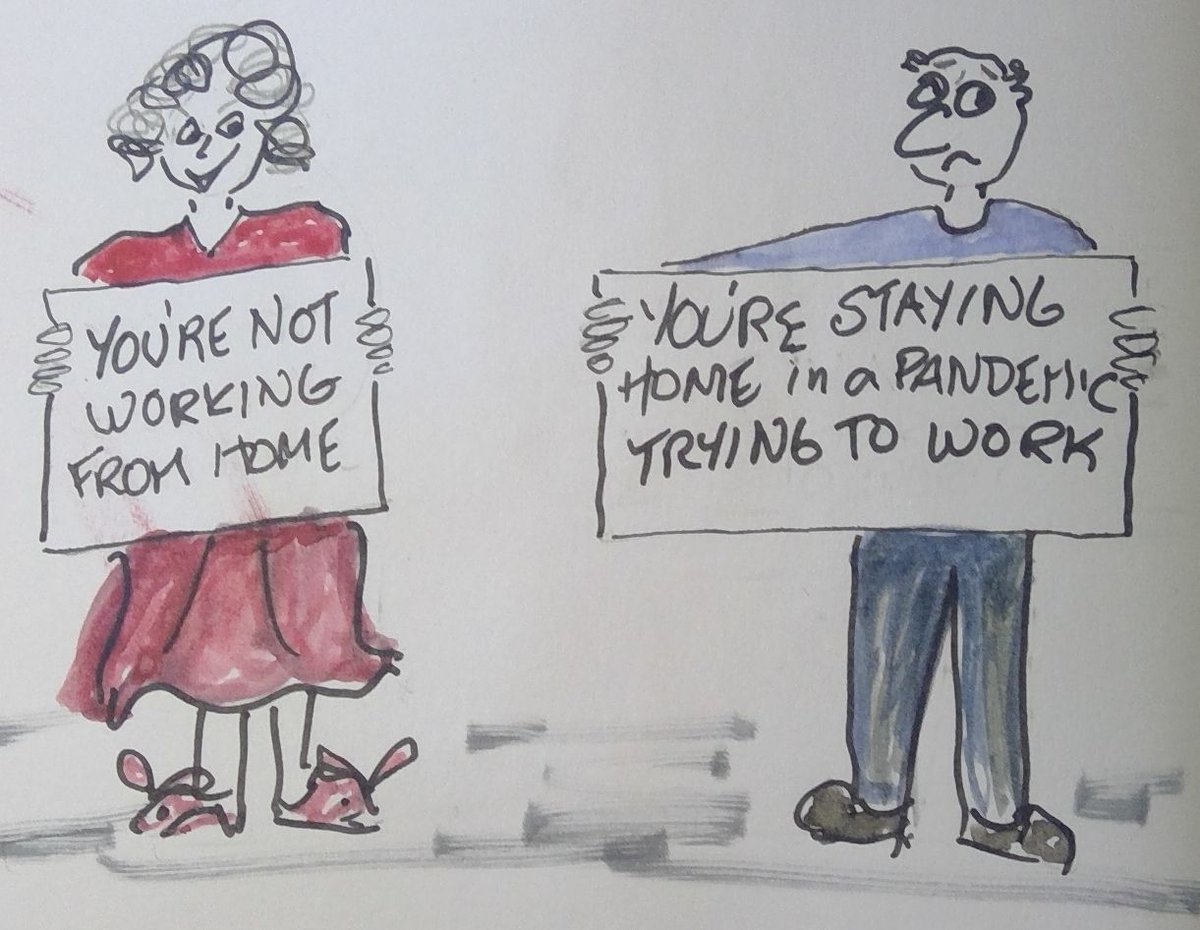 YOU'RE NOT
WORKING
FROM HOME
YOU'RE STAYING
HOME in a PANDEMIC
TRYING TO WORK